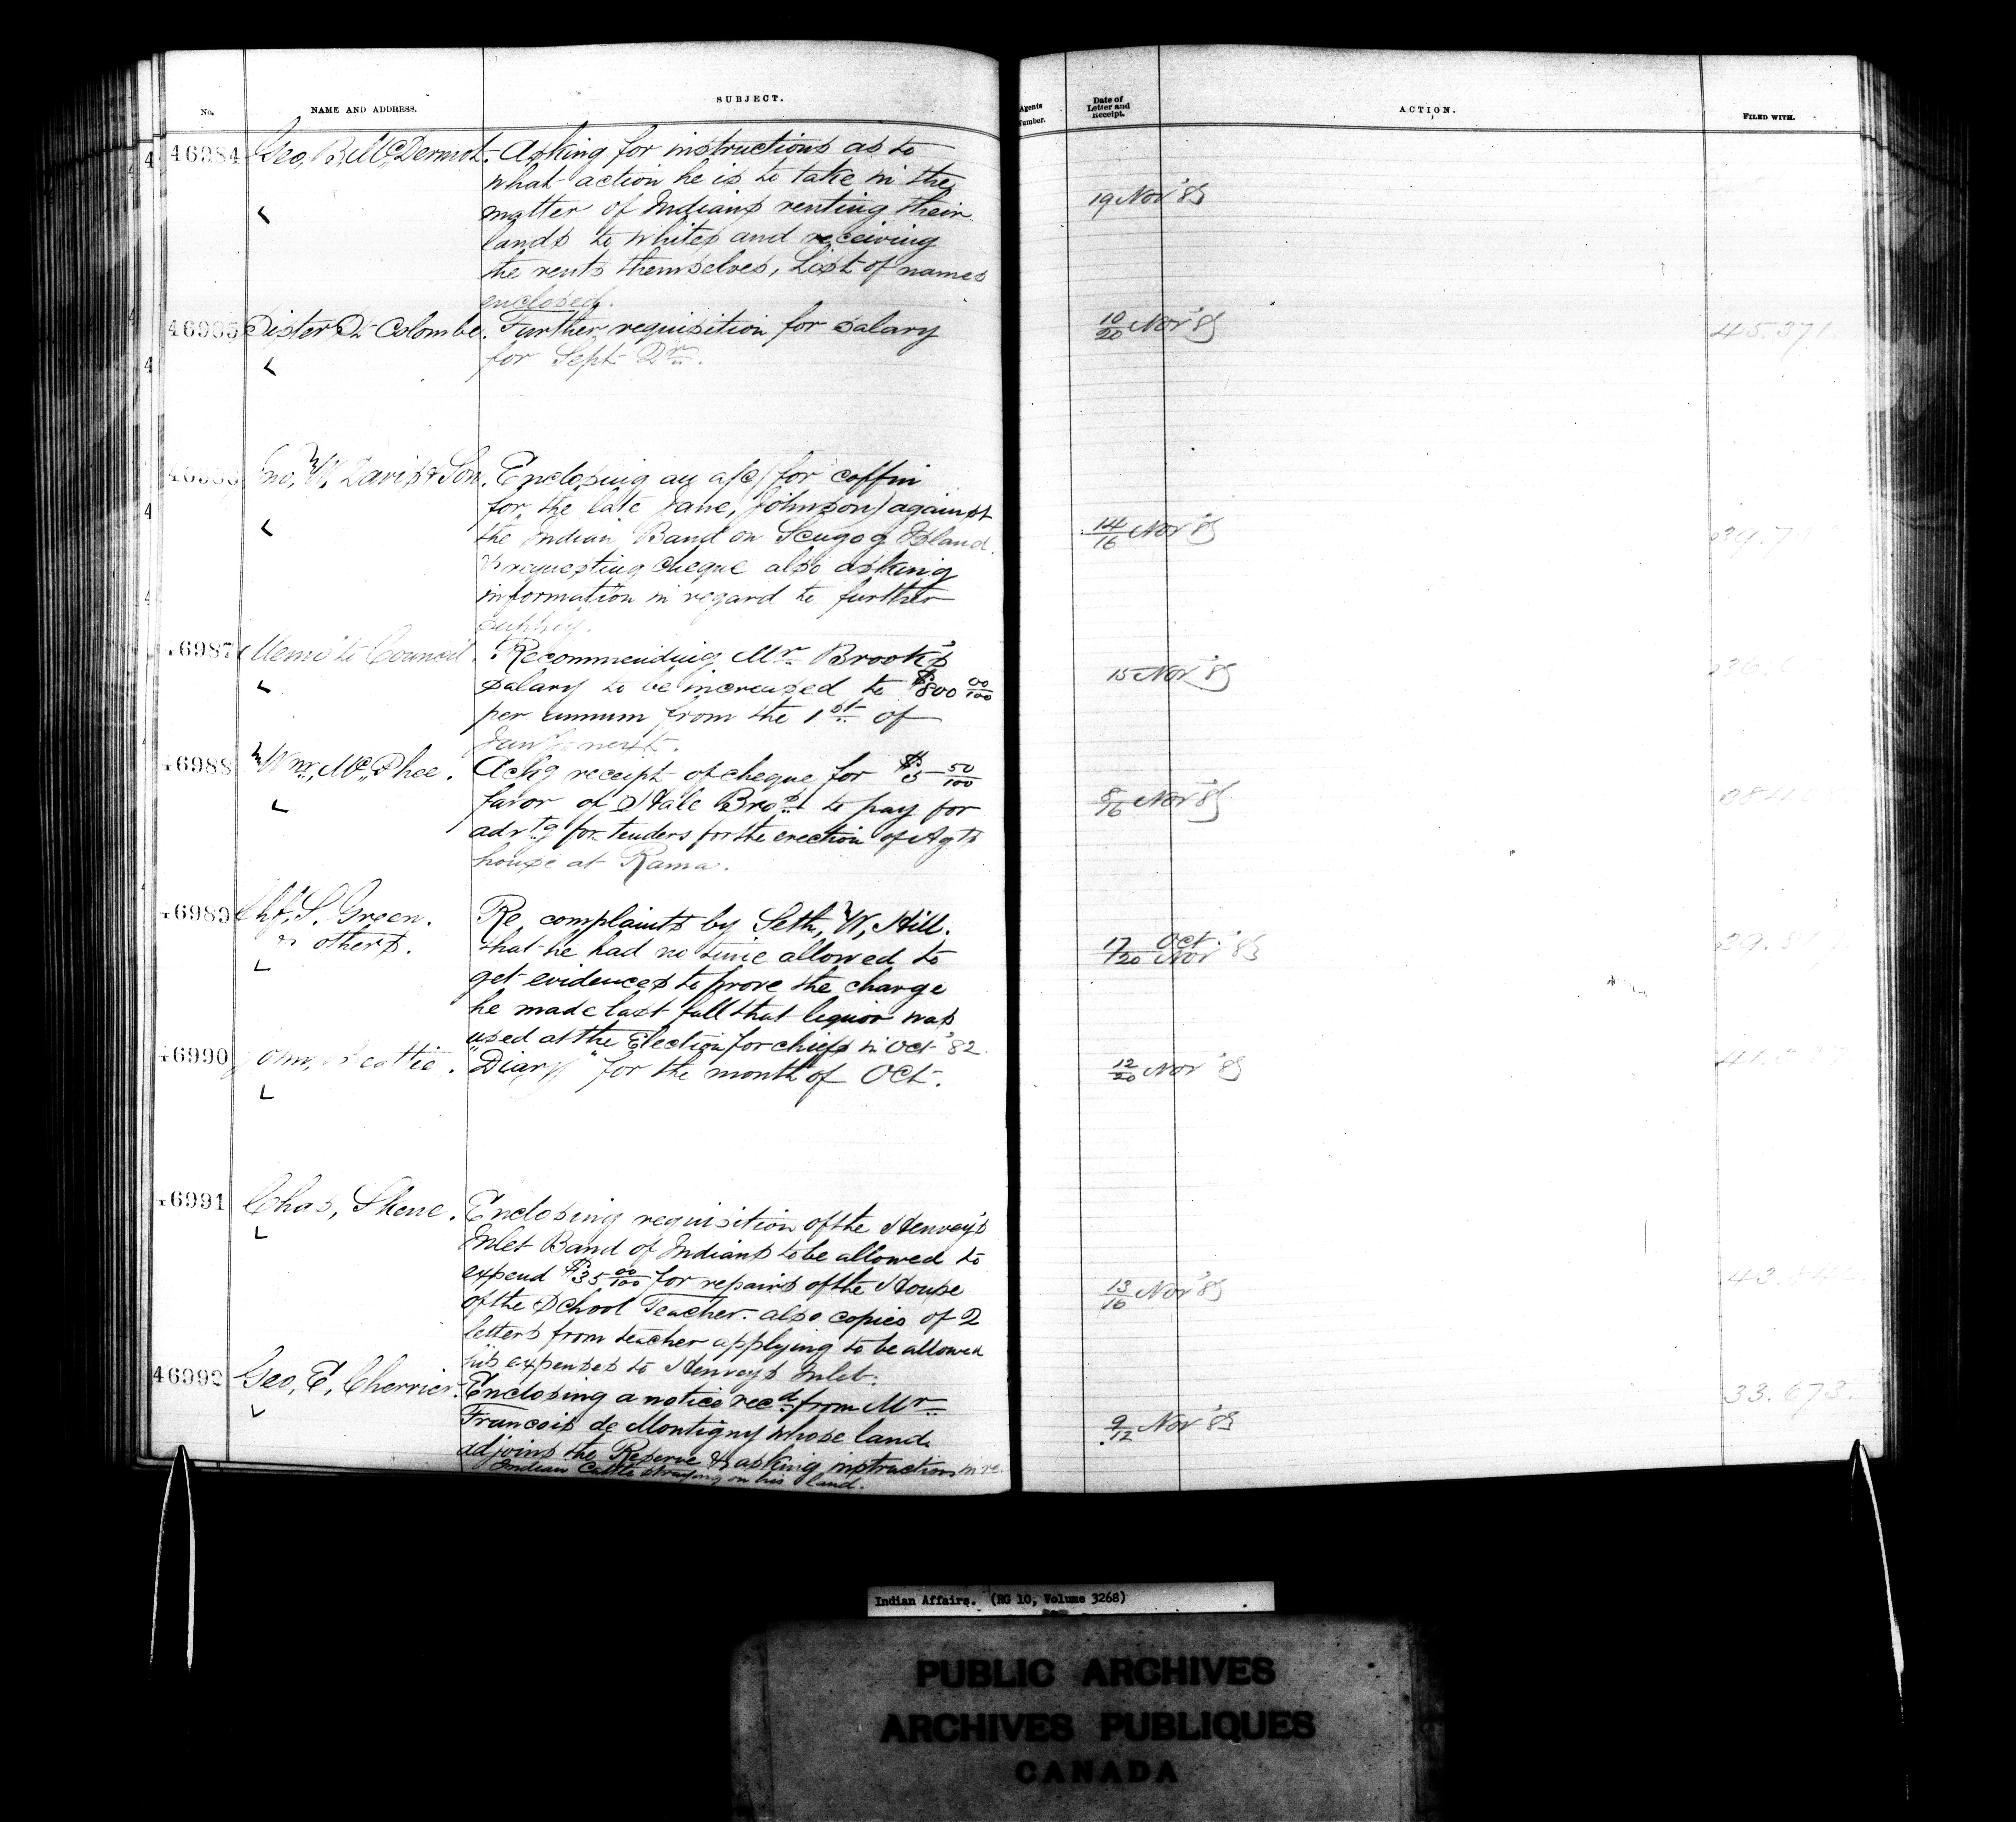 No. NAME AND ADDRESS. SUBJECT. Agents Number. Date of Letter and Receipt. ACTION. FILED WITH.
46984 Geo, B, McDermot. Asking for instructions as to
what action he is to take in the
matter of Indians renting their 19 Nov '85
lands to whites and receiving
the rents themselves, List of names
enclosed.
46985 Sister St Colombe. Further requisition for salary 10/20 Nov '85 45.371.
for Sept Qr.
Jno, W, Davis & Son. Enclosing an a/c (for coffin
for the late Jane, Johnson) against
the Indian Band on Scugog Island 14/16 Nov '85
& requesting cheque also asking
information in regard to further
supply.
46987 Memo to Council. Recommending Mr Brook's
salary to be increased to $800 00/100 15 Nov '85
per annum from the 1st of
Jany next.
46988 Wm, Mc,Phee. Ackg receipt of cheque for $5 50/100
favor of Hale Bros to pay for 8/16 Nov '85
advtg for tenders for the erection of Agts
house at Rama.
46989 Chf, S. Green. Re, complaints by Seth, W, Hill.
& others. that he had no time allowed to 17/20 Oct. Nov '85
get evidences to prove the charge
he made last fall that liquor was
used at the Election for chiefs in Oct '82
46990 John, Beattie. "Diary" for the month of Oct. 12/20 Nov '85
46991 Chas, Skene. Enclosing requisition of the Henvey's
Inlet Band of Indians to be allowed to
expend $35 00/100 for repairs of the House 13/16 Nov '85
of the School Teacher. also copies of 2
letters from teacher applying to be allowed
his expenses to Henveys Inlet.
46992 Geo, E, Cherrier. Enclosing a notice recd from Mr 33.673.
Francois de Montigny whose land 9/12 Nov '85
adjoins the Reserve & asking instructions in re.
Indian Cattle straying on his land.
Indian Affairs. (RG 10, Volume 3268)
PUBLIC ARCHIVES
ARCHIVES PUBLIQUES
CANADA